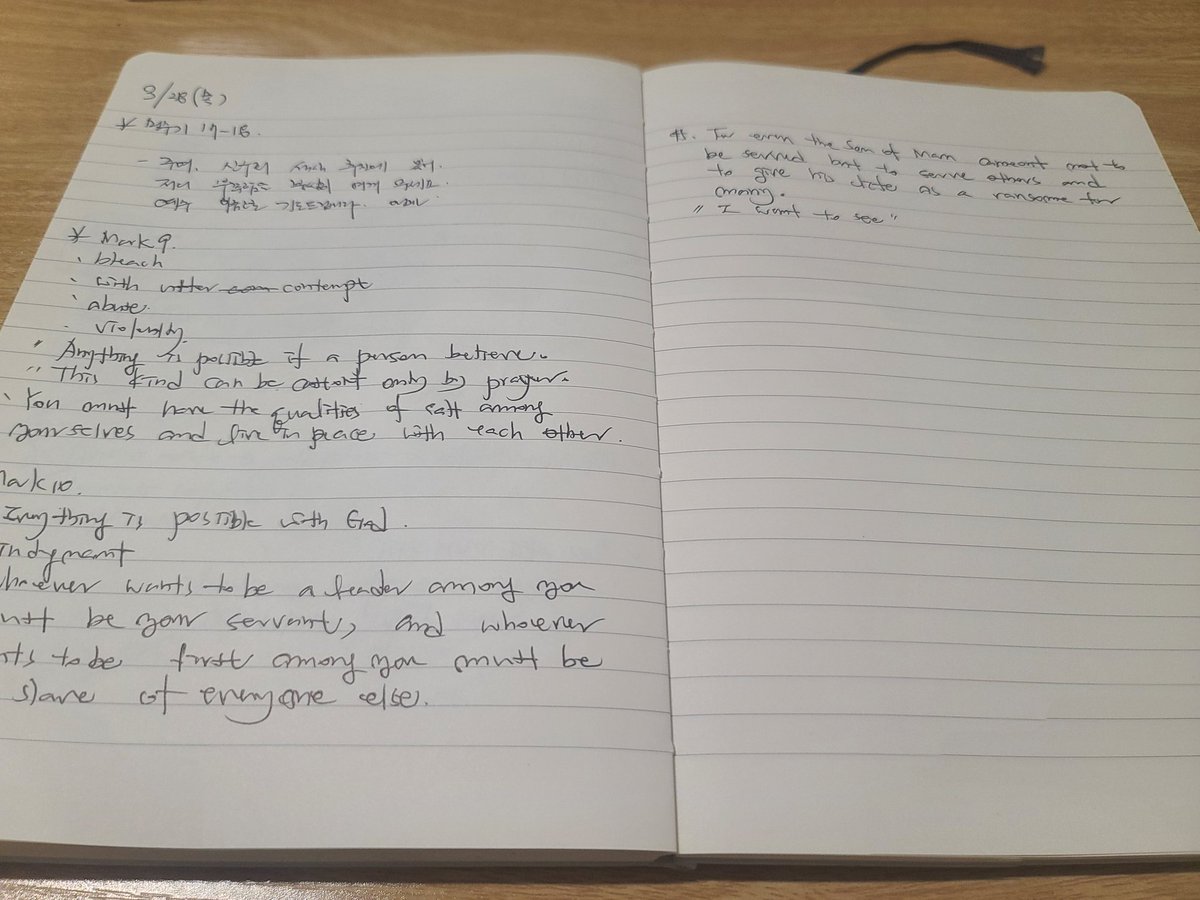 3/28
17-18.
- 주여.
예수 기도드립니다. 아멘
* Mark 9.
· bleach
· with utter contempt
· abuse.
· violently.
" Anything is possible if a person believe.
" This kind can be castout only by prayer.
· You must have the qualities of salt among
yourselves and live in peace with each other.
Mark 10.
Everything is possible with God.
Indgnant
whoever wants to be a leader among you
must be your servant, and whoever
wants to be first among you must be
slave of everyone else.
45. For even the Son of Man came not to
be served but to serve others and
to give his life as a ransome for
many.
" I want to see "